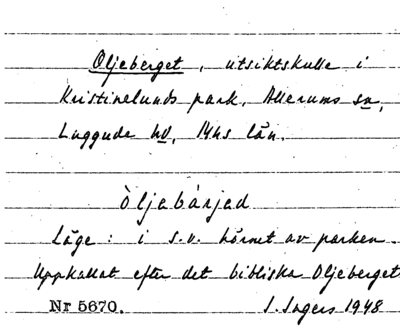 Oljeberget, utsiktskulle i
Kristinelunds park, Allerums sn,
Luggude hd, Mhs län.
Òljabárjad
Läge: i s.v. hörnet av parken.
Uppkallat efter det bibliska Oljeberget
Nr 5670. I. Ingers 1948